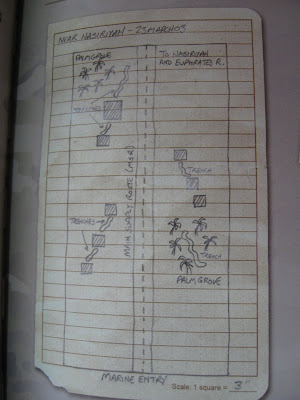 NEAR NASIRIYAH - 23MARCH03
PALMGROVE
TO NASIRIYAH
AND EUPHRATES R.
TRENCHES
TRENCH
MAIN SUPPLY ROUTE (MSR)
TRENCHES
TRENCH
PALM GROVE
MARINE ENTRY
Scale: 1 square = 3"